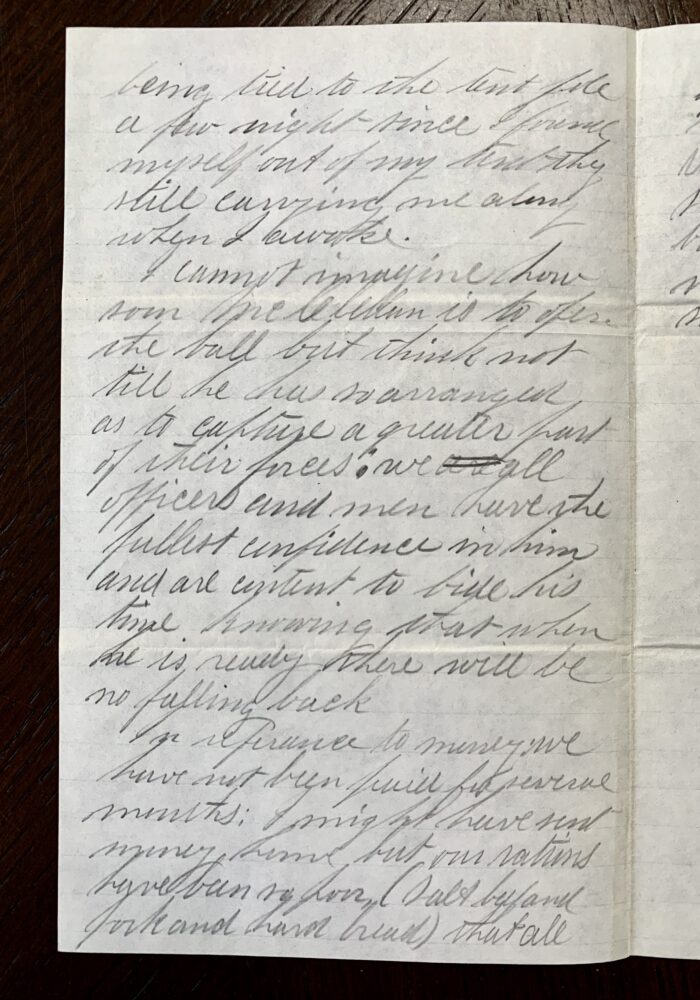 being tied to the tent pole
a few night since I found
myself out of my tent they
still carrying me along
when I awoke.
I cannot imagine how
soon McClellan is to open
the ball but think not
till he has so arranged
as to capture a greater part
of their forces; we all
officers and men have the
fullest confidence in him
and are content to bide his
time knowing that when
he is ready there will be
no falling back
In referance to money: we
have not been paid for several
months; I might have sent
money home but our rations
have been so poor (salt beef and
pork and hard bread) that all